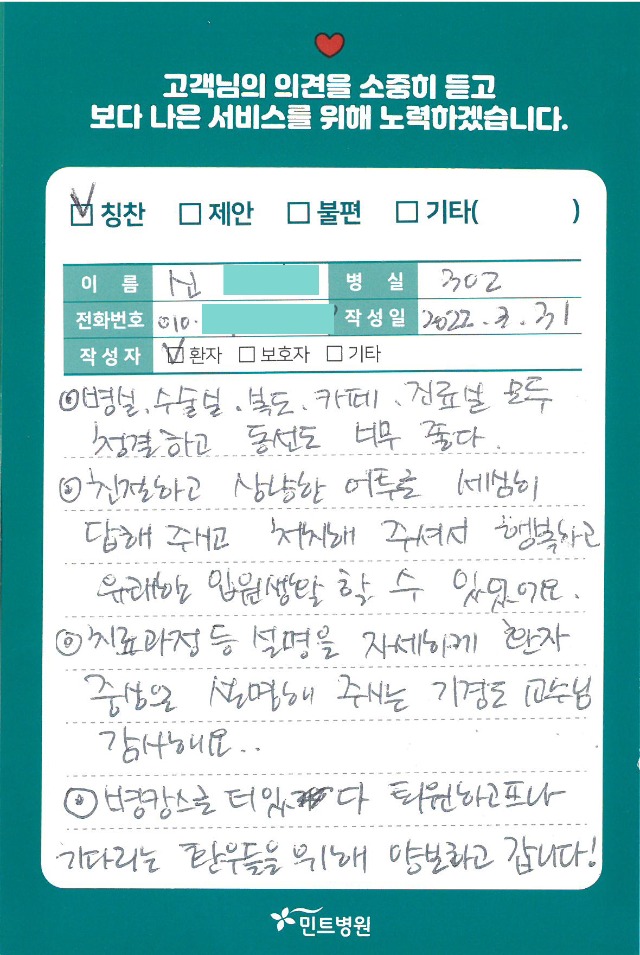 고객님의 의견을 소중히 듣고
보다 나은 서비스를 위해 노력하겠습니다.
☑ 칭찬 ☐ 제안 ☐ 불편 ☐ 기타( )
이 름 신 병 실 302
전화번호 010. 작성일 2022. 3. 31
작성자 ☑ 환자 ☐ 보호자 ☐ 기타
병실. 수술실. 복도. 카페. 진료실 모두
청결하고 동선도 너무 좋다.
친절하고 상냥한 어투로 세심히
답해 주시고 처치해 주셔서 행복하고
유쾌한 입원생활 할 수 있었어요.
치료과정 등 설명을 자세하게 환자
중심으로 설명해 주시는 기경도 교수님
감사해요..
병캉스를 더 있다 퇴원하고프나
기다리는 환우들을 위해 양보하고 갑니다!
민트병원